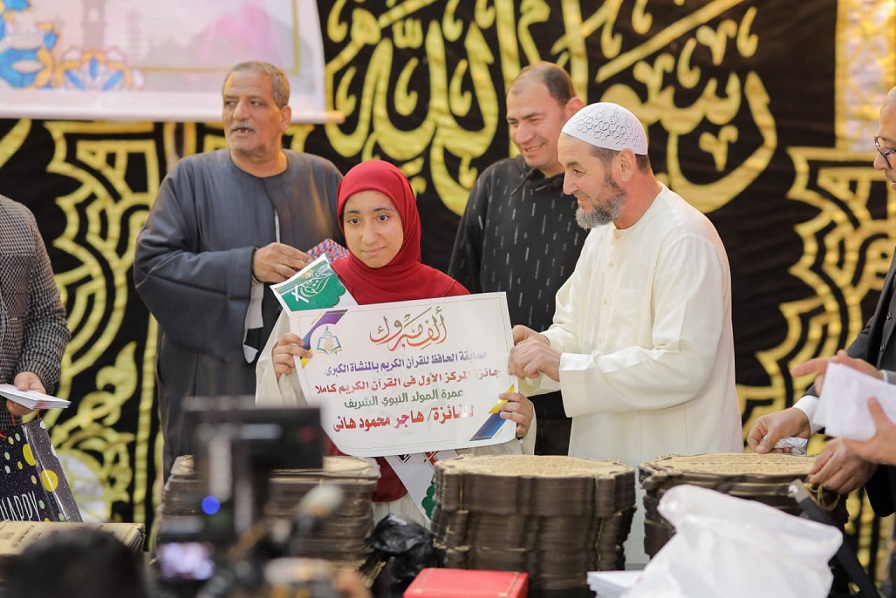 ألف مبروك
مسابقة الحافظ للقرآن الكريم بالمنشأة الكبرى
جائزة المركز الأول فى القرآن الكريم كاملا
عمرة المولد النبوي الشريف
للفائزة/ هاجر محمود هانى
HAPPY